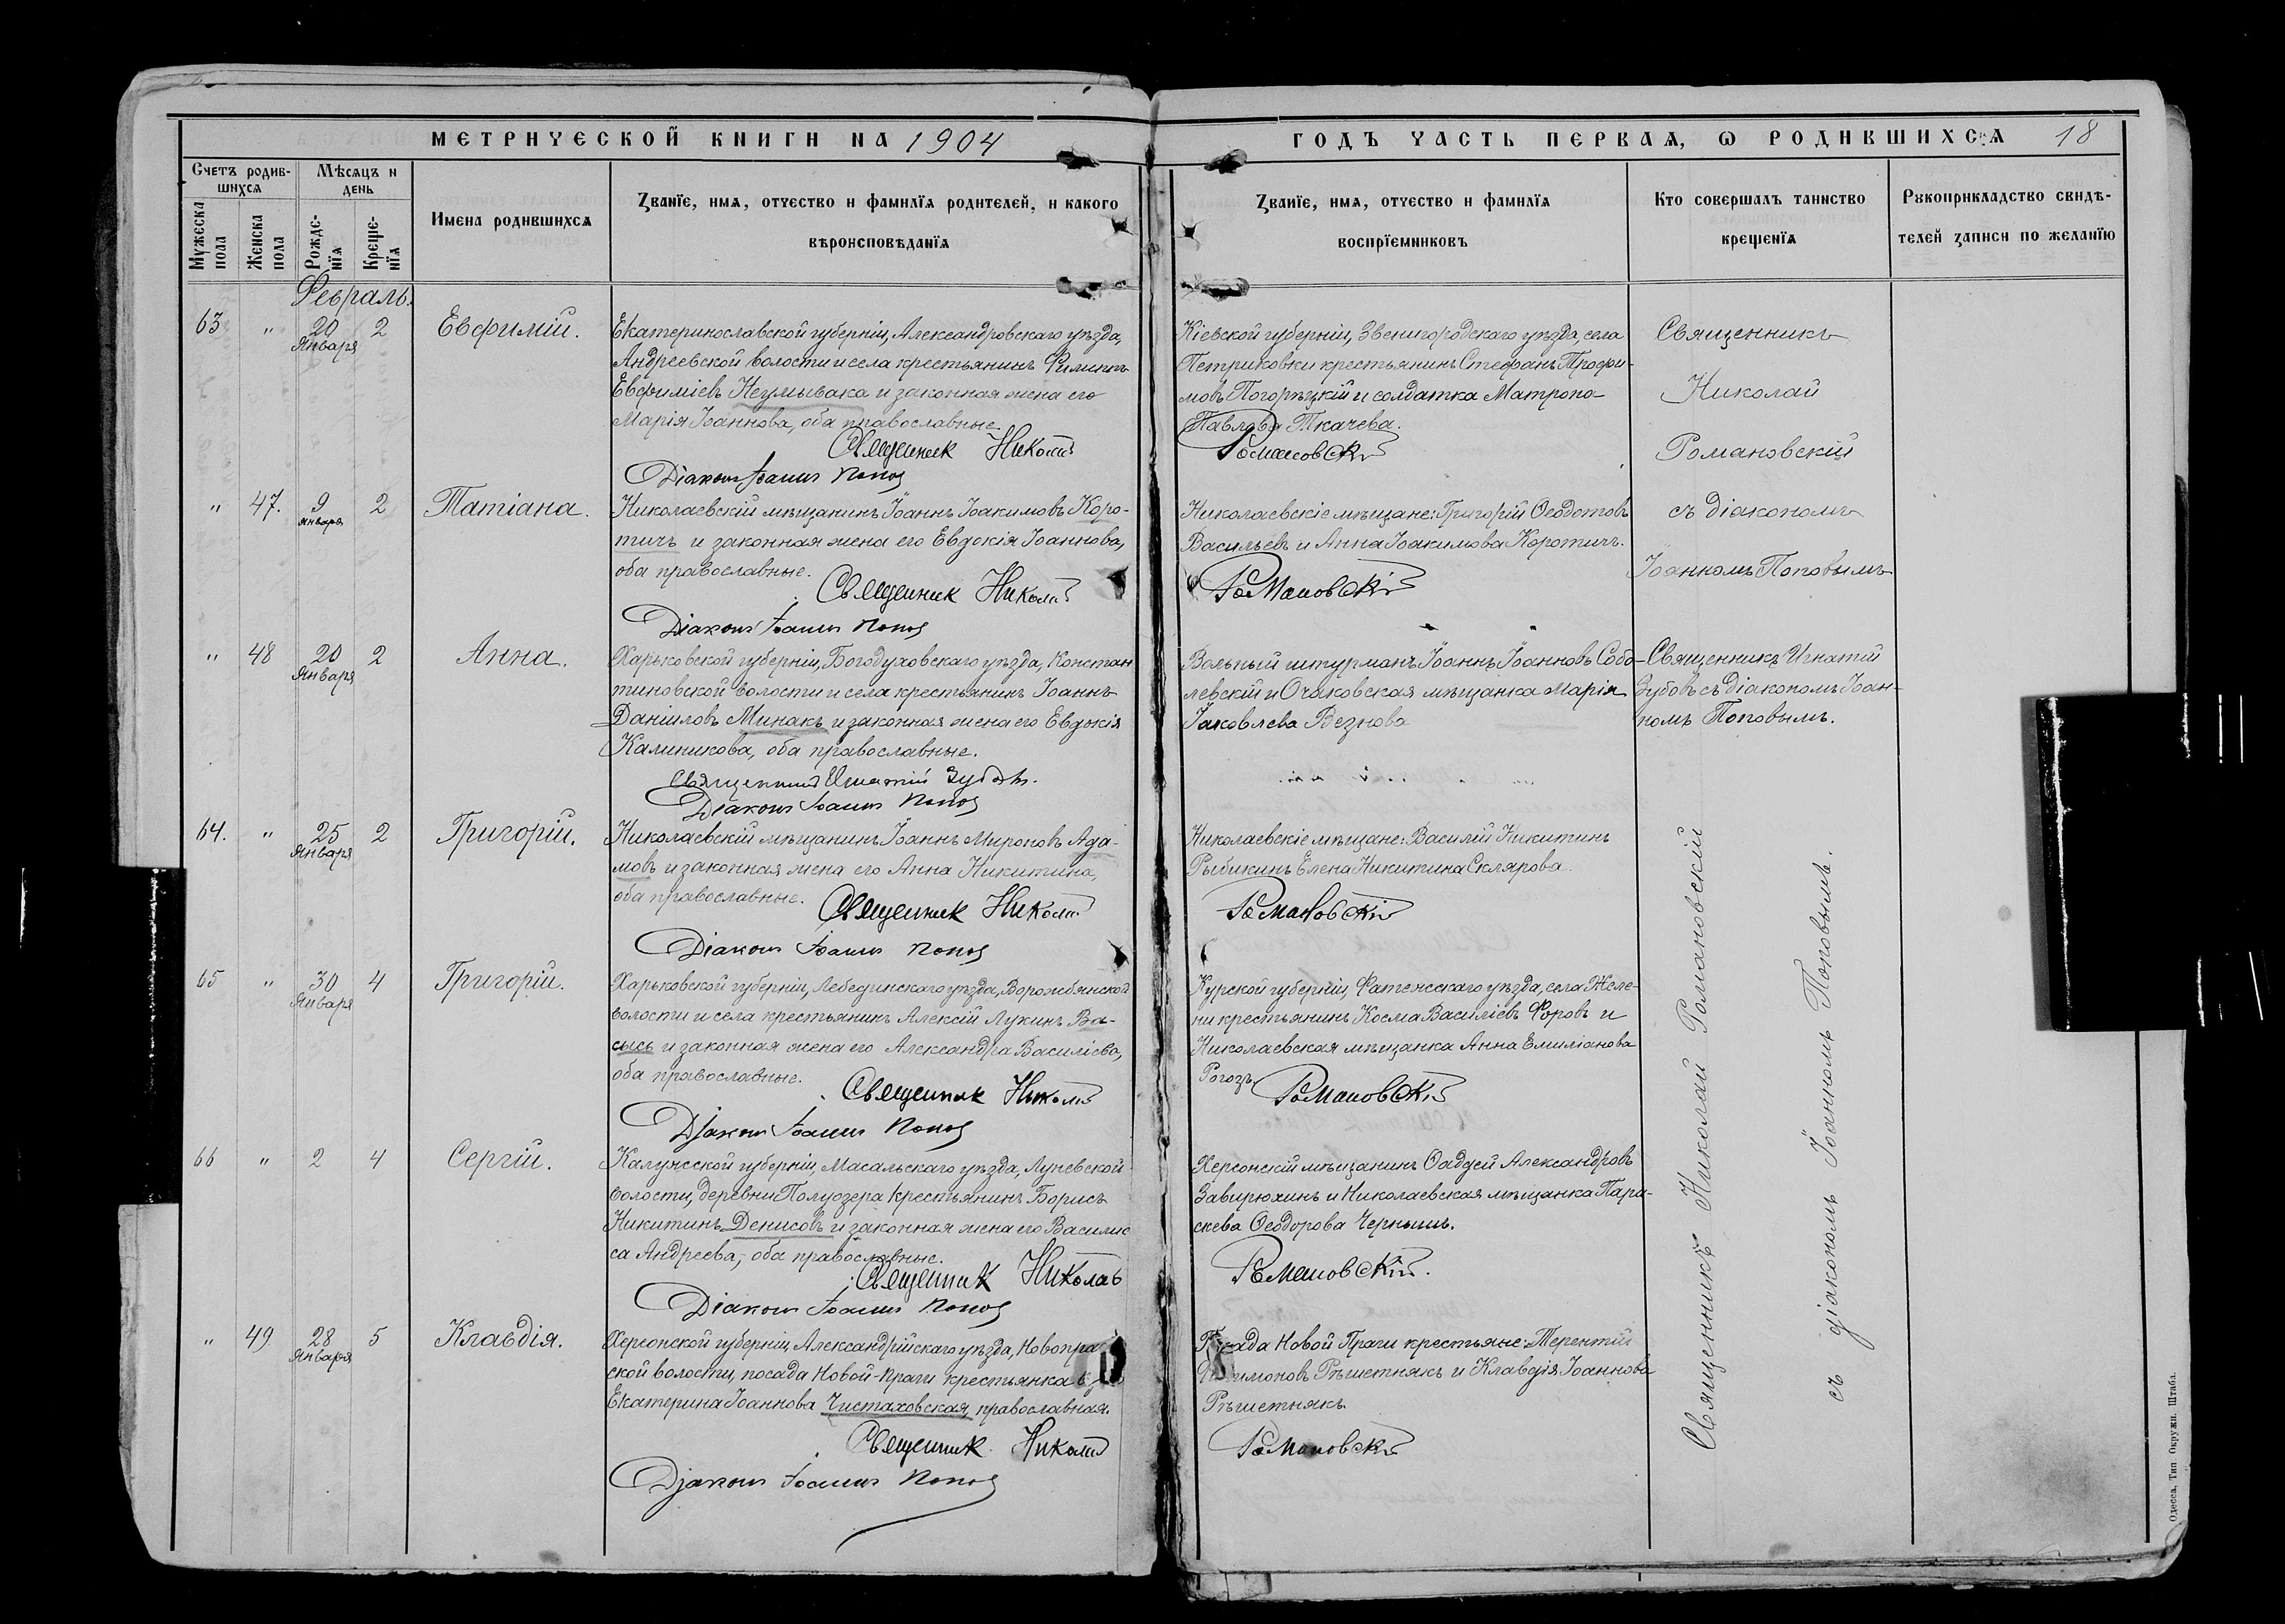 МЕТРИЧЕСКОЙ КНИГИ НА 1904
ГОДЪ ЧАСТЬ ПЕРВАЯ, Ѡ РОДИВШИХСЯ 18
Счетъ родив-
шихся
Мѣсяцъ и
день
Мужеска
пола
Женска
пола
Рожде-
нїя
Креще-
нїя
Имена родившихся
Званїе, имя, отчество и фамилїя родителей, и какого
вѣроисповѣданїя
Званїе, имя, отчество и фамилїя
воспрїемниковъ
Кто совершалъ таинство
крещенїя
Рукоприкладство свидѣ-
телей записи по желанїю
Февраль.
63 " 20 Января 2 Евфимій.
Екатеринославской губерніи, Александровскаго уѣзда,
Андреевской волости и села крестьянинъ Филиппъ
Евфиміевъ Неумывака и законная жена его
Марія Іоаннова, оба православные.
Священник Николай
Діаконъ Іоаннъ Попов
Кіевской губерніи, Звенигородскаго уѣзда, села
Петриковки крестьянинъ Стефанъ Трофи-
мовъ Погорѣцкій и солдатка Матрона
Павлова Ткачева.
Романовскій
Священникъ
Николай
Романовскій
съ діакономъ
Іоанномъ Поповымъ
" 47. 9 Января 2 Татіана.
Николаевскій мѣщанинъ Іоаннъ Іоакимовъ Коро-
тичъ и законная жена его Евдокія Іоаннова,
оба православные.
Священник Николай
Діаконъ Іоаннъ Попов
Николаевскіе мѣщане: Григорій Ѳеодотовъ
Васильевъ и Анна Іоакимова Коротичъ.
Романовскій
" 48 20 Января 2 Анна.
Харьковской губерніи, Богодуховскаго уѣзда, Констан
тиновской волости и села крестьянинъ Іоаннъ
Даніиловъ Минакъ и законная жена его Евдокія
Калиникова, оба православные.
Священникъ Игнатій Зубовъ.
Діаконъ Іоаннъ Попов
Вольный штурманъ Іоаннъ Іоанновъ Собо-
левскій и Очаковская мѣщанка Марія
Іаковлева Везнова
Священникъ Игнатій
Зубовъ съ діакономъ Іоан-
номъ Поповымъ.
64. " 25 Января 2 Григорій.
Николаевскій мѣщанинъ Іоаннъ Мироновъ Ада-
мовъ и законная жена его Анна Никитина,
оба православные.
Священник Николай
Діаконъ Іоаннъ Попов
Николаевскіе мѣщане: Василій Никитинъ
Рыбикинъ Елена Никитина Склярова.
Романовскій
65 " 30 Января 4 Григорій.
Харьковской губерніи, Лебединскаго уѣзда, Ворожбянской
волости и села крестьянинъ Алексій Лукинъ Ва-
сысь и законная жена его Александра Василіева,
оба православные.
Священник Николай
Діаконъ Іоаннъ Попов
Курской губерніи, Фатежскаго уѣзда, села Желе-
ни крестьянинъ Косма Василіевъ Форовъ и
Николаевская мѣщанка Анна Емиліанова
Рогозъ.
Романовскій
66 " 2 4 Сергій.
Калужской губерніи, Масальскаго уѣзда, Луневской
волости, деревни Полуозера крестьянинъ Борисъ
Никитинъ Денисовъ и законная жена его Василис
са Андреева, оба православные.
Священник Николай
Діаконъ Іоаннъ Попов
Херсонскій мѣщанинъ Ѳаддей Александровъ
Завирюхинъ и Николаевская мѣщанка Пара-
скева Ѳеодорова Чернышъ.
Романовскій.
" 49 28 Января 5 Клавдія.
Херсонской губерніи, Александрійскаго уѣзда, Новопра
ской волости, посада Новой-Праги крестьянка
Екатерина Іоаннова Чистаховская, православная.
Священник Николай
Діаконъ Іоаннъ Попов
Посада Новой Праги крестьяне: Терентій
Рѣшетнякъ и Клавдія Іоаннова
Рѣшетнякъ.
Романовскій
Священникъ Николай Романовскій
съ діакономъ Іоанномъ Поповымъ.
Одесса, Тип Окружн. Штаба.